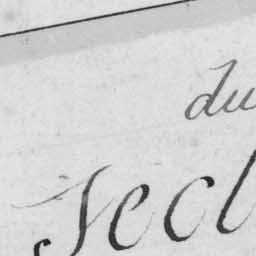 du
Secl